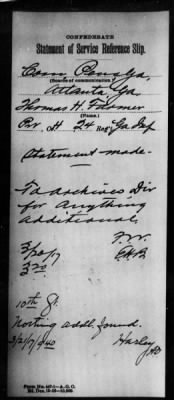 CONFEDERATE
Statement of Service Reference Slip.
Com Pens Ga,
(Source of communication.)
Atlanta Ga
Thomas H. Farmer
(Name.)
Pvt. H 24 Reg Ga Inf
Statement made-
To archives Div
for Anything
additional.
3/20/17
10th G.
Nothing addl. found.
3/21/17 340 Harley